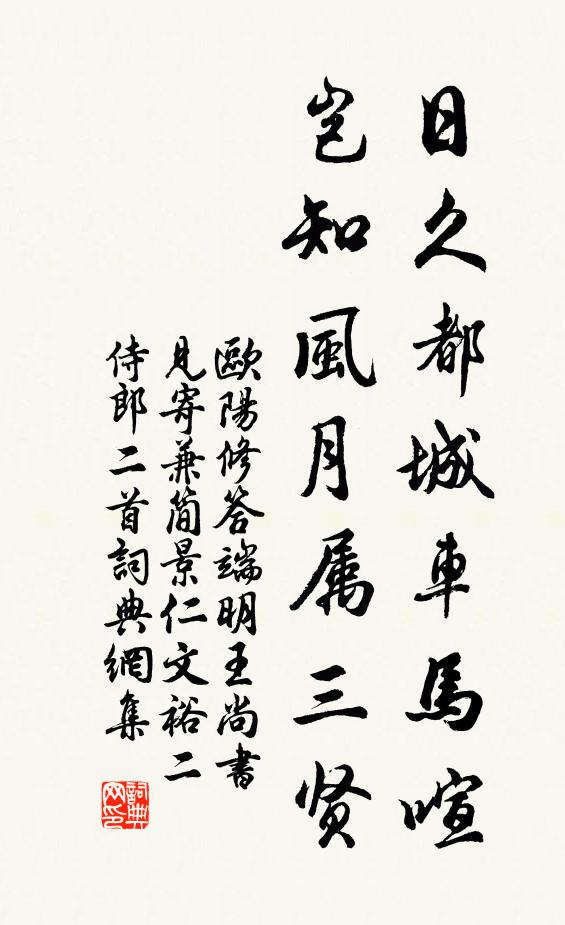 日久都城車馬喧
岂知風月属三贤
歐陽修答端明王尚書
見寄兼簡景仁文裕二
侍郎二首詞典網集
詞典网印